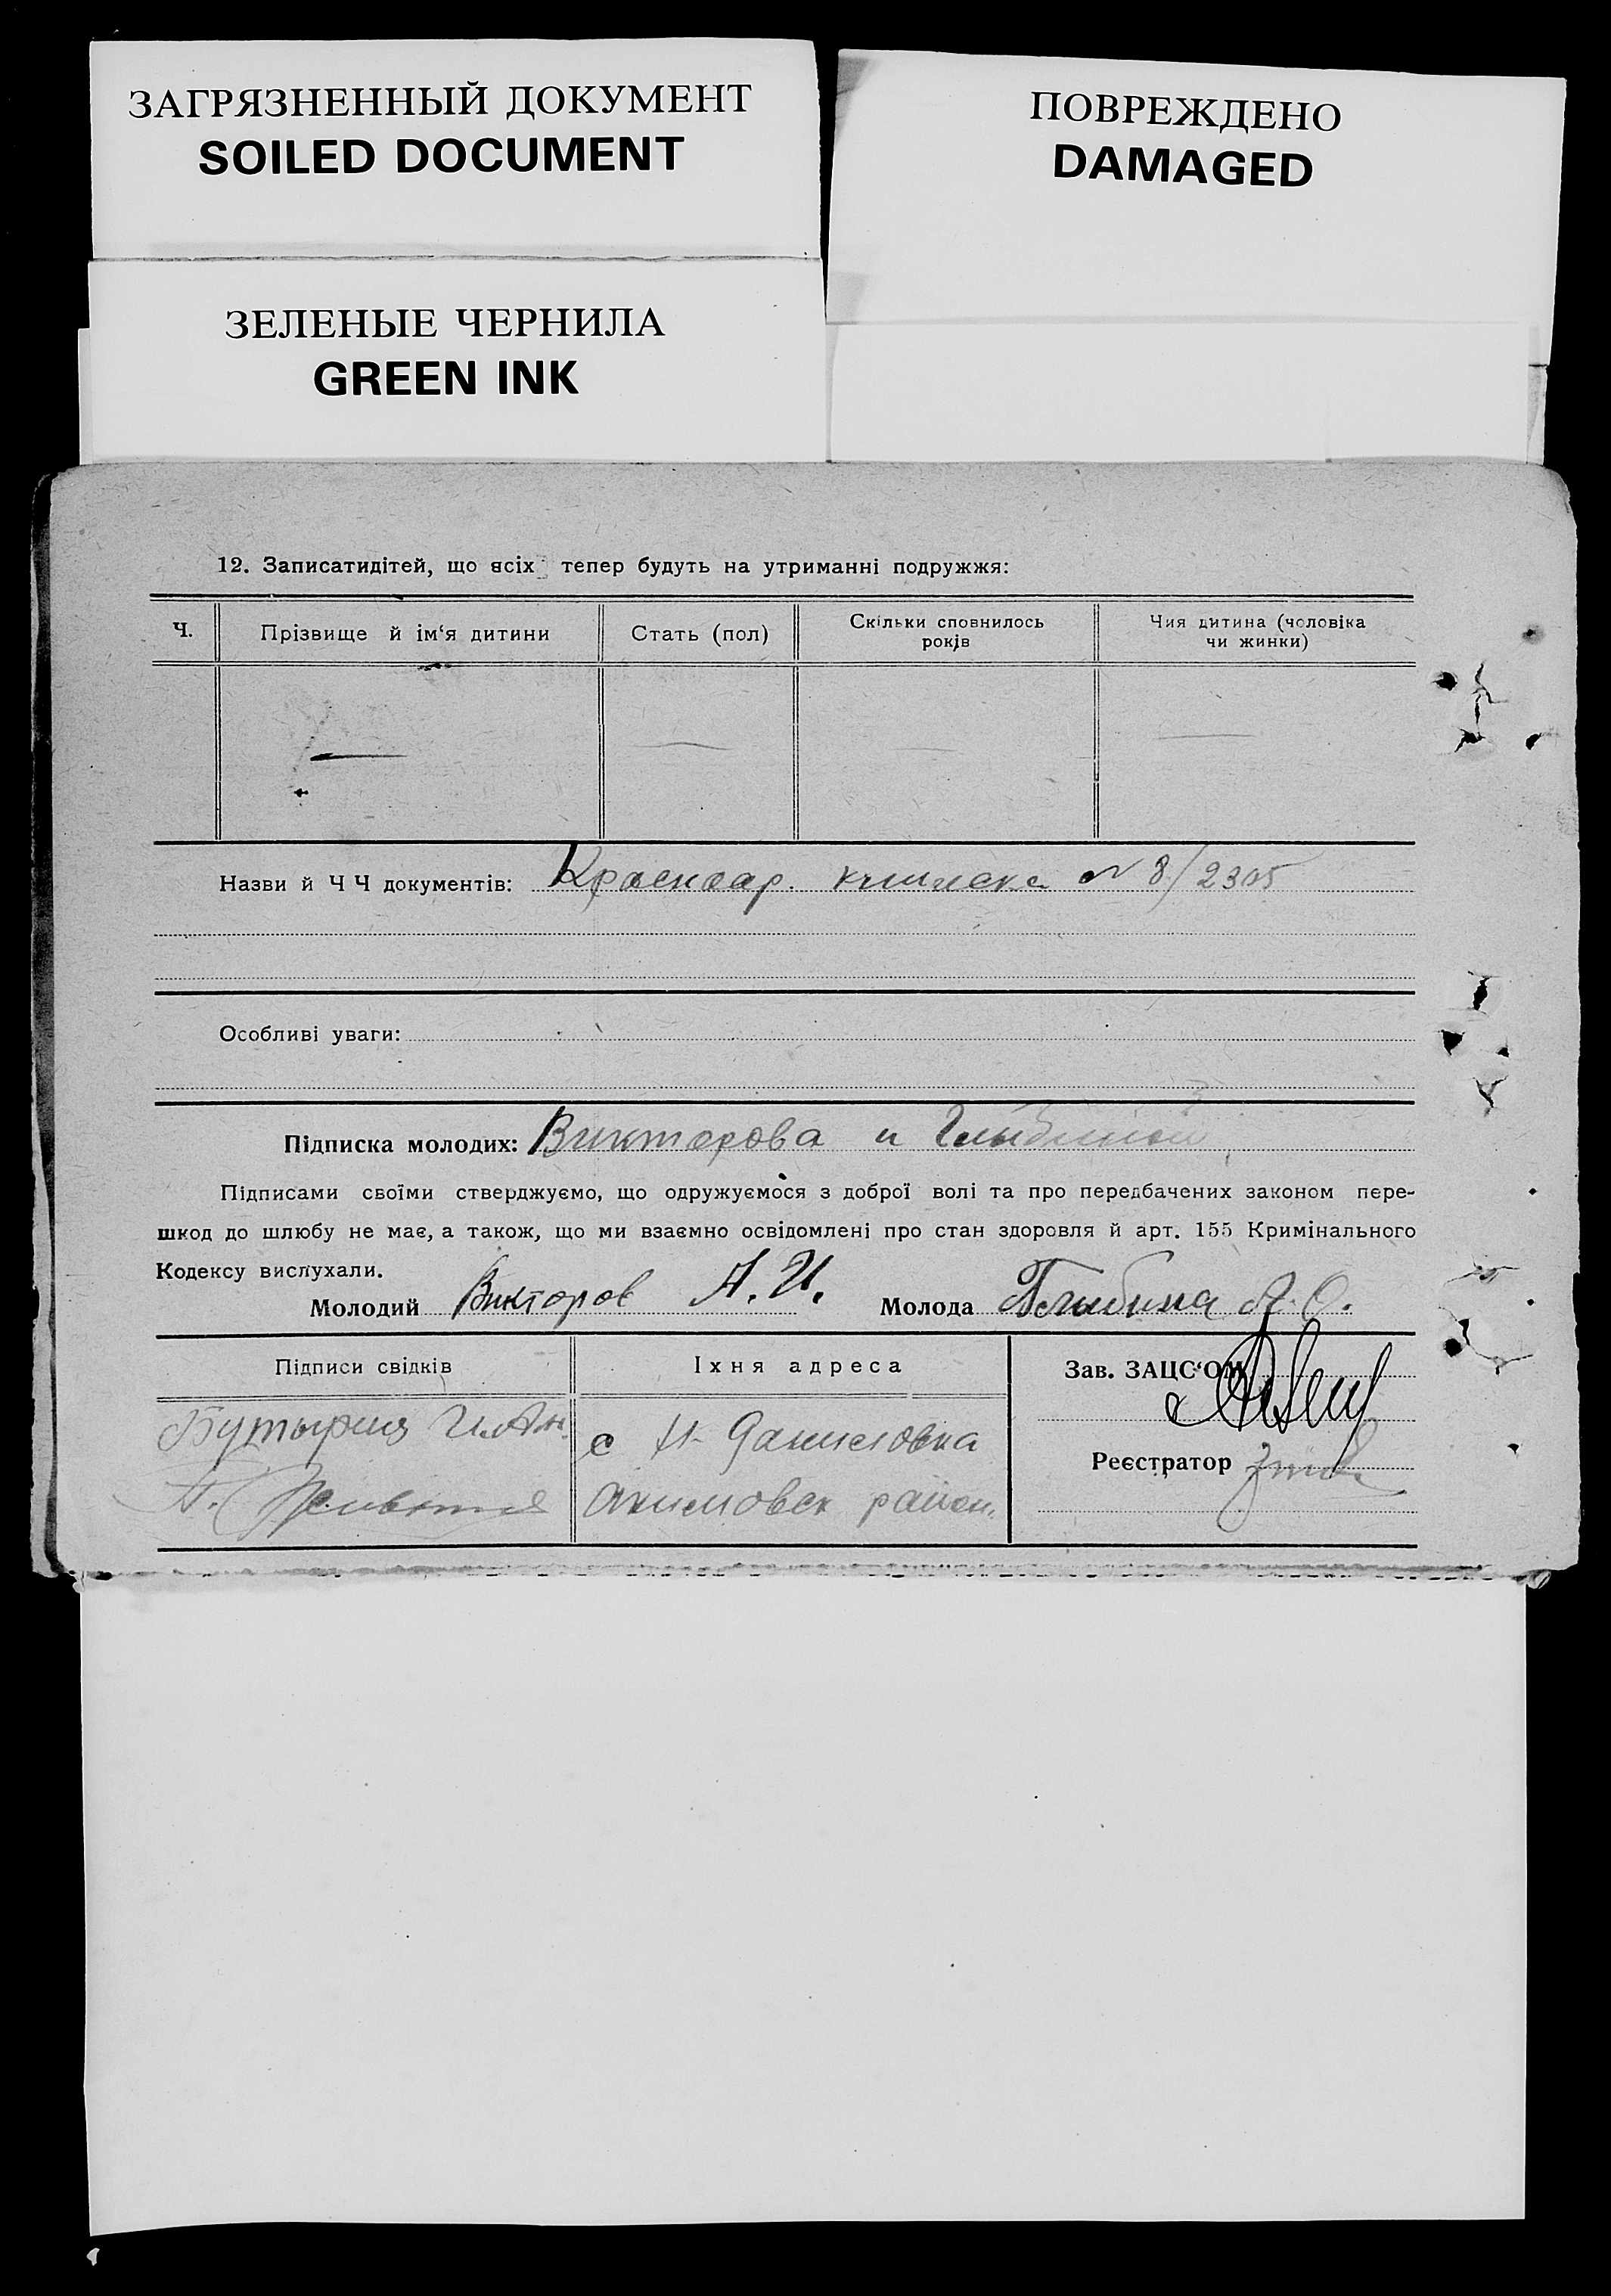 ЗАГРЯЗНЕННЫЙ ДОКУМЕНТ
SOILED DOCUMENT
ПОВРЕЖДЕНО
DAMAGED
ЗЕЛЕНЫЕ ЧЕРНИЛА
GREEN INK
12. Записатидітей, що всіх тепер будуть на утриманні подружжя:
Ч.
Прізвище й ім‘я дитини
Стать (пол)
Скільки сповнилось
років
Чия дитина (чоловіка
чи жинки)
Назви й Ч Ч документів: Красноар. книжка № 8/2305
Особливі уваги:
Підписка молодих: Викторова и Глыбиной
Підписами своїми стверджуємо, що одружуємося з доброї волі та про передбачених законом пере-
шкод до шлюбу не має, а також, що ми взаємно освідомлені про стан здоровля й арт. 155 Кримінального
Кодексу вислухали.
Молодий Викторов А. И. Молода Глыбина А. О.
Підписи свідків
Їхня адреса
Зав. ЗАЦС‘ОМ
с Н-Даниловка
Акимовск район.
Реєстратор